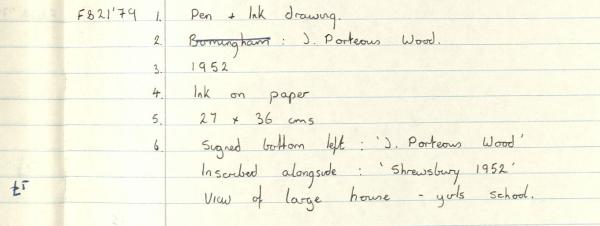 FB21'79 1. Pen + Ink drawing.
2. Birmingham : J. Porteous Wood.
3. 1952
4. Ink on paper
5. 27 x 36 cms
6. Signed bottom left : 'J. Porteous Wood'
Inscribed alongside : 'Shrewsbury 1952'
View of large house - girls school.